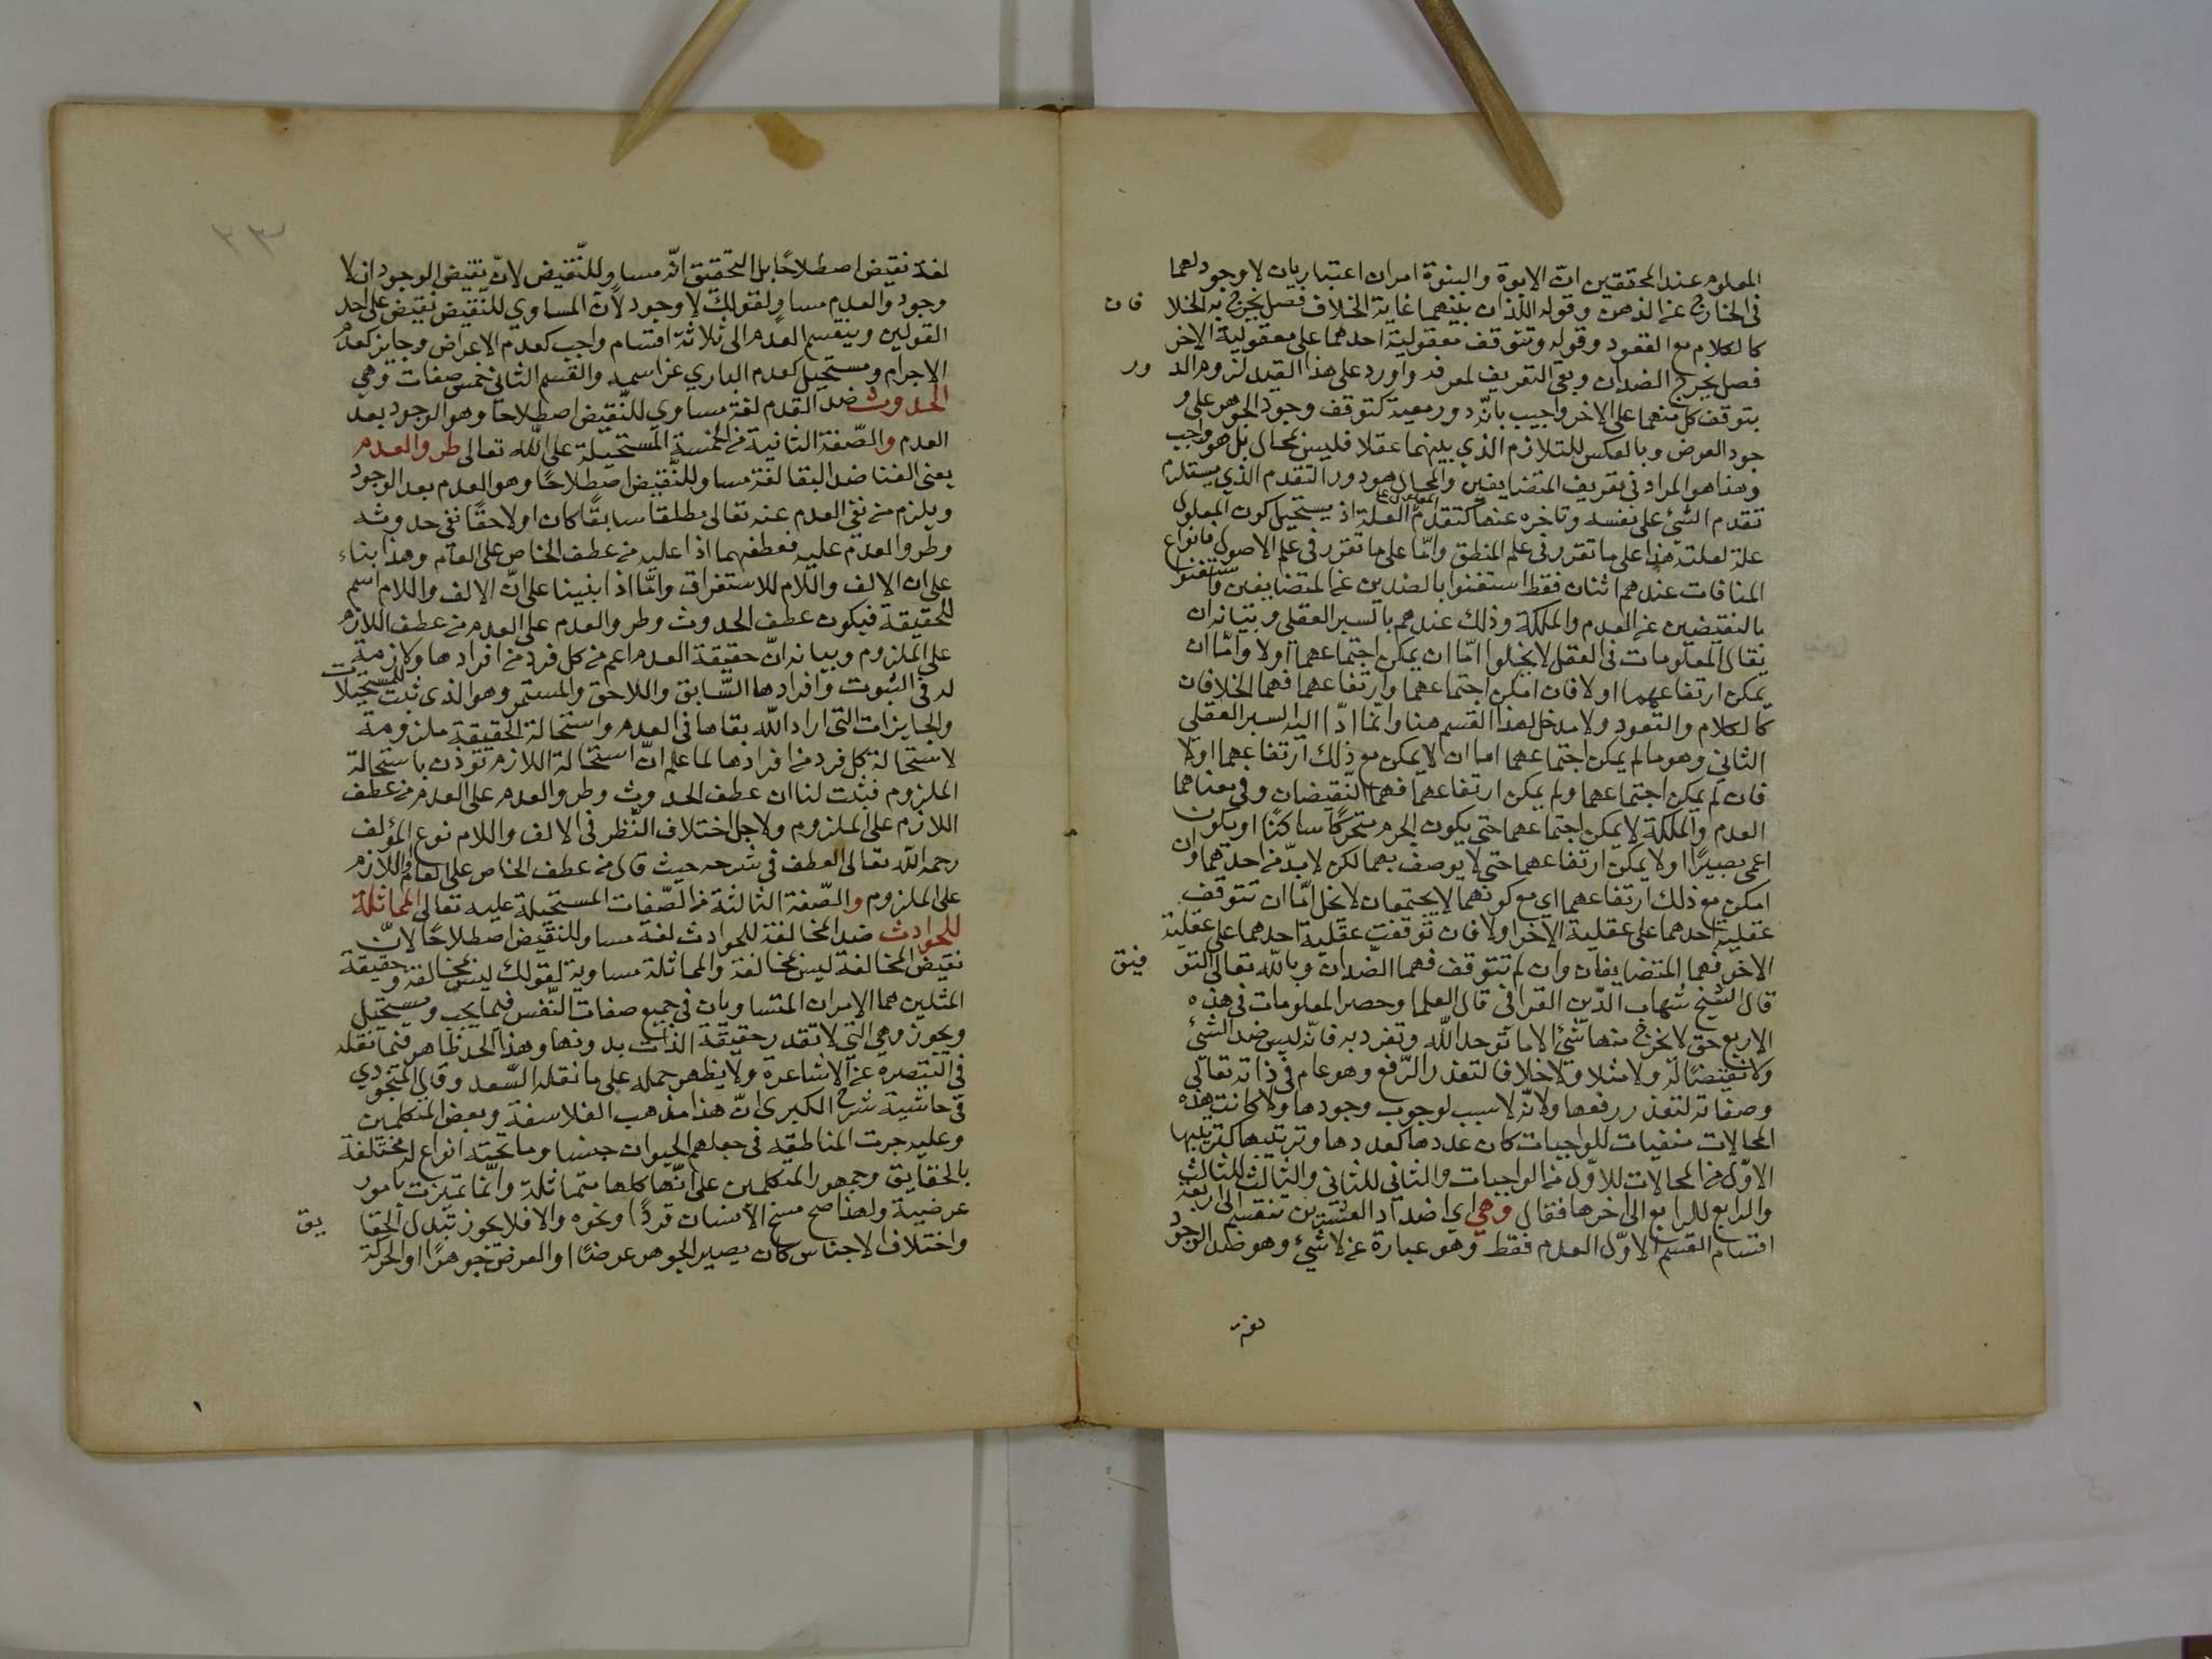 المعلوم عند المحققين ان الابوة والبنوة امران اعتباريان لا وجود لهما
في الخارج عن الذهن وقوله اللذان بينهما غاية الخلاف فصل يخرج به الخلافان
كالكلام مع القعود وقوله وتتوقف معقولية احدهما على معقولية الاخر
فصل يخرج الضدان وبقي التعريف لمعرفه واورد على هذا القيد لزوم الدور
بتوقف كل منهما على الاخر واجيب بانّه دور معية كتوقف وجود الجوهر على و
جود العرض وبالعكس للتلازم الذي بينهما عقلا فليس بمحال بل هو واجب
وهذا هو المراد في تعريف المتضايفين والمحال هو دور التقدم الذي يستلزم
تقدم الشئ على نفسه وتاخره عنها كتقدم المعلول على العلة اذ يستحيل كون المعلول
علة لعلته هذا على ما تقرر في علم المنطق وامّا على ما تقرر في علم الاصول فانواع
المنافات عندهم اثنان فقط استغنوا بالضدين عن المتضايفين واستغنوا
بالنقيضين عن العدم والملكة وذلك عندهم بالسبر العقلي وبيانه ان
يقال المعلومات في العقل لا يخلوا امّا ان يمكن اجتماعهما اولا وامّا ان
يمكن ارتفاعهما اولا فان امكن اجتماعهما وارتفاعهما فهما الخلافان
كالكلام والقعود ولا مدخل لهذا القسم هنا وانما ادّا اليه السبر العقلي
الثاني وهو ما لم يمكن اجتماعهما اما ان لا يمكن مع ذلك ارتفاعهما اولا
فان لم يمكن اجتماعهما ولم يمكن ارتفاعهما فهما النّقيضان وفي معناهما
العدم والملكة لا يمكن اجتماعهما حتى يكون الجرم متحركًا ساكنًا او يكون
اعمى بصيرًا او لا يمكن ارتفاعهما حتى لا يوصف بهما لكن لا بدّ من احدهما وان
امكن مع ذلك ارتفاعهما اي مع كونهما لا يجتمعان لا يخل امّا ان تتوقف
عقلية احدهما على عقلية الاخر اولا فان توقفت عقلية احدهما على عقلية
الاخر فهما المتضايفان وان لم تتوقف فهما الضدان وبالله تعالى التوفيق
قال الشيخ شهاب الدّين القرافي قال العلما وحصر المعلومات في هذه
الاربع حق لا يخرج منها شئ الا ما توحد الله وتفرد به فانّه ليس ضد الشئ
ولا نقيضًا له ولا مثلا ولا خلافا لتعذر الرّفع وهو عام في ذاته تعالى
وصفاته لتعذر رفعها ولانّه لا سبب لوجوب وجودها ولا كانت هذه
المحالات منفيات للواجبات كان عددها كعددها وترتيبها كترتيبها
الاوّل من المحالات للاوّل من الواجبات والثاني للثاني والثالث للثالث
والرابع للرابع الى اخرها فقال وهي اي اضداد العشرين تنقسم الى اربعة
اقسام القسم الاوّل العدم فقط وهو عبارة عن لا شئ وهو ضد الوجود
٢٣
لغة نقيض اصطلاحًا بل التحقيق انّه مساو للنّقيض لانّ نقيض الوجود ان لا
وجود والعدم مساو لقولك لا وجود لان المساوي للنّقيض نقيض على احد
القولين وينقسم العدم الى ثلاثة اقسام واجب كعدم الاعراض وجايز كعدم
الاجرام ومستحيل كعدم الباري عز اسمه والقسم الثاني خمس صفات وهي
الحدوث ضد القدم لغة مساوي للنّقيض اصطلاحا وهو الوجود بعد
العدم والصّفة الثانية من الخمسة المستحيلة على الله تعالى طرو العدم
يعني الفنا ضد البقا لغة مساو للنّقيض اصطلاحًا وهو العدم بعد الوجود
ويلزم من نفي العدم عنه تعالى مطلقا سابقًا كان اولاحقًا نفي حدوثه
وطرو العدم عليه فعطفهما اذا عليه من عطف الخاص على العام وهذا بناء
على ان الالف واللام للاستغراق وامّا اذا بنينا على انّ الالف واللام اسم
للحقيقة فيكون عطف الحدوث وطرو العدم على العدم من عطف اللازم
على الملزوم وبيانه انّ حقيقة العدم اعم من كل فرد من افرادها ولازمة
له في الثبوت وافرادها السّابق واللاحق والمستمر وهو الذي ثبت للمستحيلات
والجايزات التي اراد الله بقاها في العدم واستحالة الحقيقة ملزومة
لاستحالة كل فرد من افرادها لما علم انّ استحالة اللازم توذن باستحالة
الملزوم فثبت لنا ان عطف الحدوث وطرو العدم على العدم من عطف
اللازم على الملزوم ولاجل اختلاف النّظر في الالف واللام نوع المؤلف
رحمه الله تعالى العطف في شرحه حيث قال من عطف الخاص على العام واللازم
على الملزوم والصّفة الثالثة من الصّفات المستحيلة عليه تعالى المماثلة
للحوادث ضد المخالفة للحوادث لغة مساو للنقيض اصطلاحًا لانّ
نقيض المخالفة ليس مخالفة والمماثلة مساوية لقولك ليس مخالفة وحقيقة
المثلين هما الامران المتساويان في جميع صفات النّفس فيما يجب ويستحيل
ويجوز وهي التي لا تتقدر حقيقة الذات بدونها وهذا الحد ظاهر فيما نقله
في التبصرة عن الاشاعرة ولا يظهر حمله على ما نقله السّعد وقال المنجودي
في حاشية شرح الكبرى انّ هذا مذهب الفلاسفة وبعض المتكلمين
وعليه جرت المناطقيه في جعلهم الحيوان جنسا وما تحته انواع له مختلفة
بالحقايق وجمهور المتكلمين على انّها كلها متماثلة وانّما تميزت بامور
عرضية ولهذا صح مسخ الانسان قردًا ونحوه والا فلا يجوز تبدل الحقايق
واختلاف الاجناس كان يصير الجوهر عرضًا والعرض جوهرًا والحركة